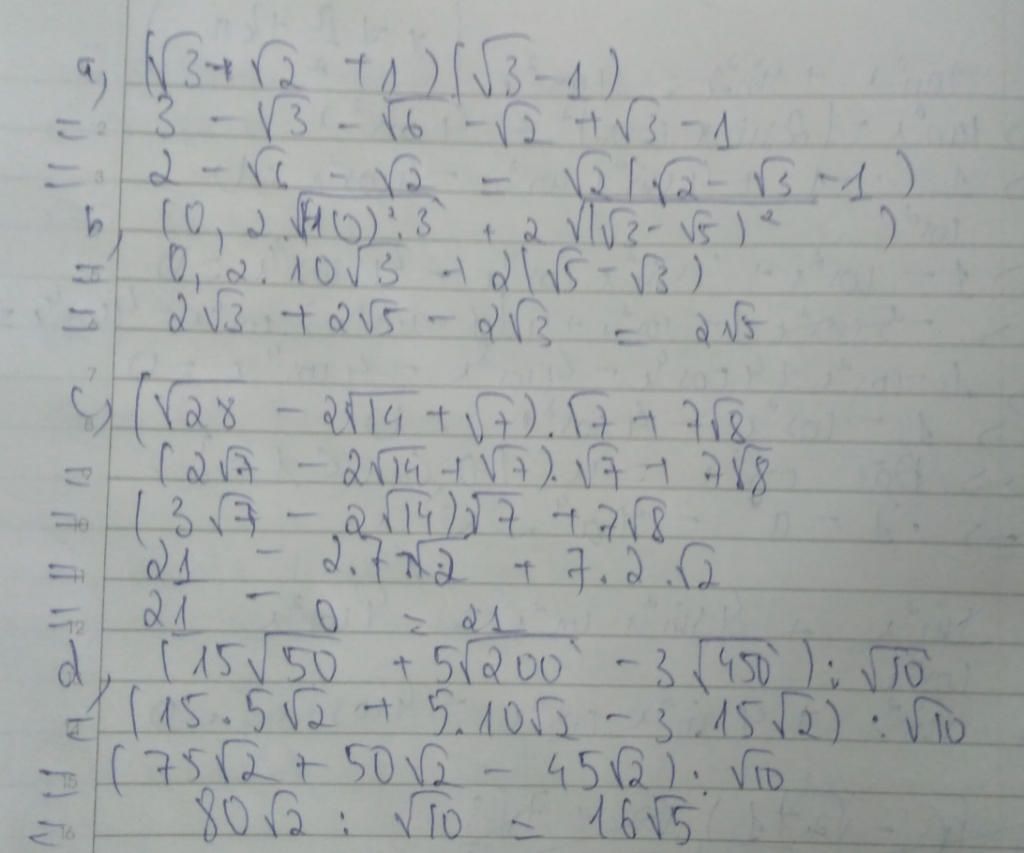 a, (√3 + √2 + 1)(√3 - 1)
= 3 - √3 - √6 - √2 + √3 - 1
= 2 - √6 - √2 = √2(√2 - √3 - 1)
b, (0,2.√(10).3 + 2√(√3 - √5)² )
= 0,2.10√3 + 2(√5 - √3)
= 2√3 + 2√5 - 2√3 = 2√5
c, (√28 - 2√14 + √7).√7 + 7√8
= (2√7 - 2√14 + √7).√7 + 7√8
= (3√7 - 2√14)√7 + 7√8
= 21 - 2.7√2 + 7.2.√2
= 21 - 0 = 21
d, (15√50 + 5√200 - 3√450) : √10
= (15.5√2 + 5.10√2 - 3.15√2) : √10
= (75√2 + 50√2 - 45√2) : √10
= 80√2 : √10 = 16√5